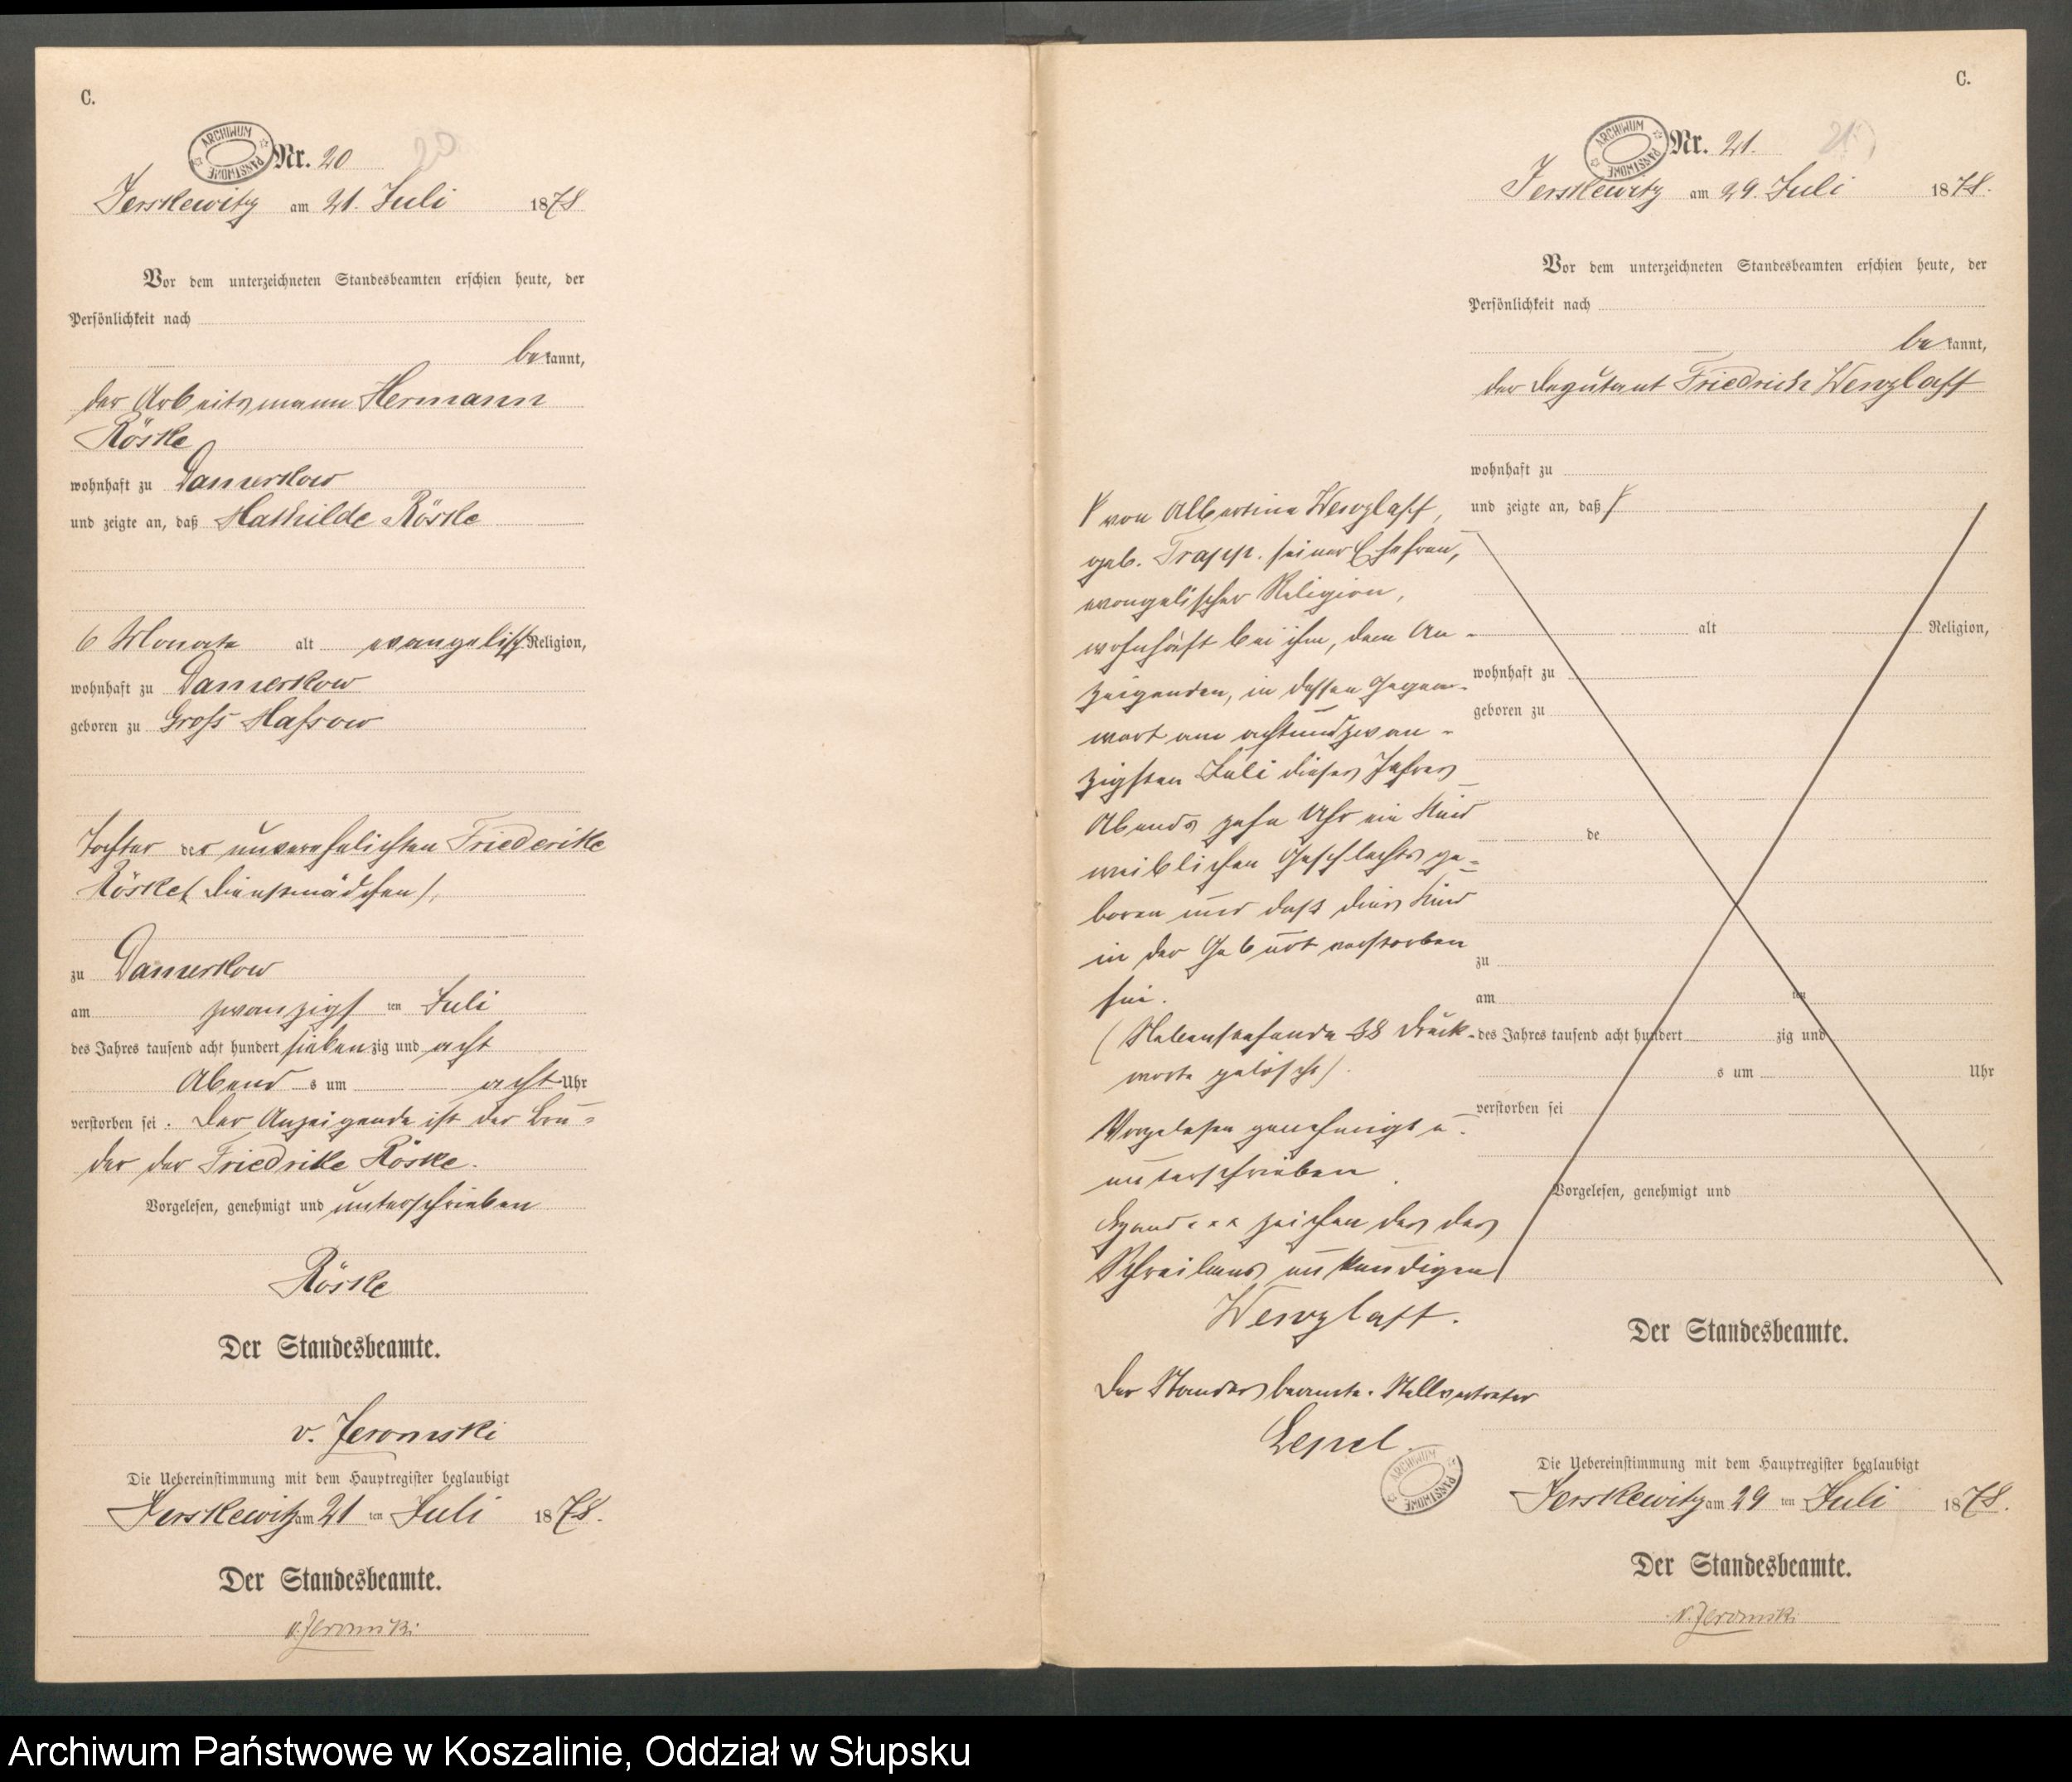 C.
ARCHIWUM PAŃSTWOWE
Nr. 20
20
Jerskewitz am 21. Juli 1878
Vor dem unterzeichneten Standesbeamten erschien heute, der
Persönlichkeit nach
bekannt,
der Arbeitsmann Hermann
Röske
wohnhaft zu Damerkow
und zeigte an, daß Mathilde Röske
6 Monate alt evangelisch Religion,
wohnhaft zu Damerkow
geboren zu Groß Massow
Tochter der unverehelichten Friederike
Röske (Dienstmädchen),
zu Damerkow
am zwanzigsten Juli
des Jahres tausend acht hundert siebenzig und acht
Abends um acht Uhr
verstorben sei. Der Anzeigende ist der Bru-
der der Friedrike Röske.
Vorgelesen, genehmigt und unterschrieben
Röske
Der Standesbeamte.
v. Jeromski
Die Uebereinstimmung mit dem Hauptregister beglaubigt
Jerskewitz am 21 ten Juli 1878.
Der Standesbeamte.
v. Jeromski
C.
ARCHIWUM PAŃSTWOWE
Nr. 21.
21
Jerskewitz am 29. Juli 1878.
Vor dem unterzeichneten Standesbeamten erschien heute, der
Persönlichkeit nach
bekannt,
der Deputant Friedrich Wenzlaff
wohnhaft zu
und zeigte an, daß
alt Religion,
wohnhaft zu
geboren zu
de
zu
am ten
des Jahres tausend acht hundert zig und
s um Uhr
verstorben sei
Vorgelesen, genehmigt und
von Albertine Wenzlaff,
geb. Trapp. seiner Ehefrau,
evangelischer Religion,
wohnhaft bei ihm, dem An-
zeigenden, in dessen Gegen-
wart am achtundzwan-
zigsten Juli dieses Jahres
Abends zehn Uhr ein Kind
weiblichen Geschlechts ge-
boren und daß dies Kind
in der Geburt verstorben
sei.
(Nebenstehende 38 Druck-
worte gelöscht).
Vorgelesen genehmigt u.
unterschrieben
xxx zeichen des des
Schreibens unkundigen
Wenzlaff.
Der Standesbeamte. Stellvertreter
Lepel.
ARCHIWUM PAŃSTWOWE
Der Standesbeamte.
Die Uebereinstimmung mit dem Hauptregister beglaubigt
Jerskewitz am 29 ten Juli 1878.
Der Standesbeamte.
v. Jeromski
Archiwum Państwowe w Koszalinie, Oddział w Słupsku